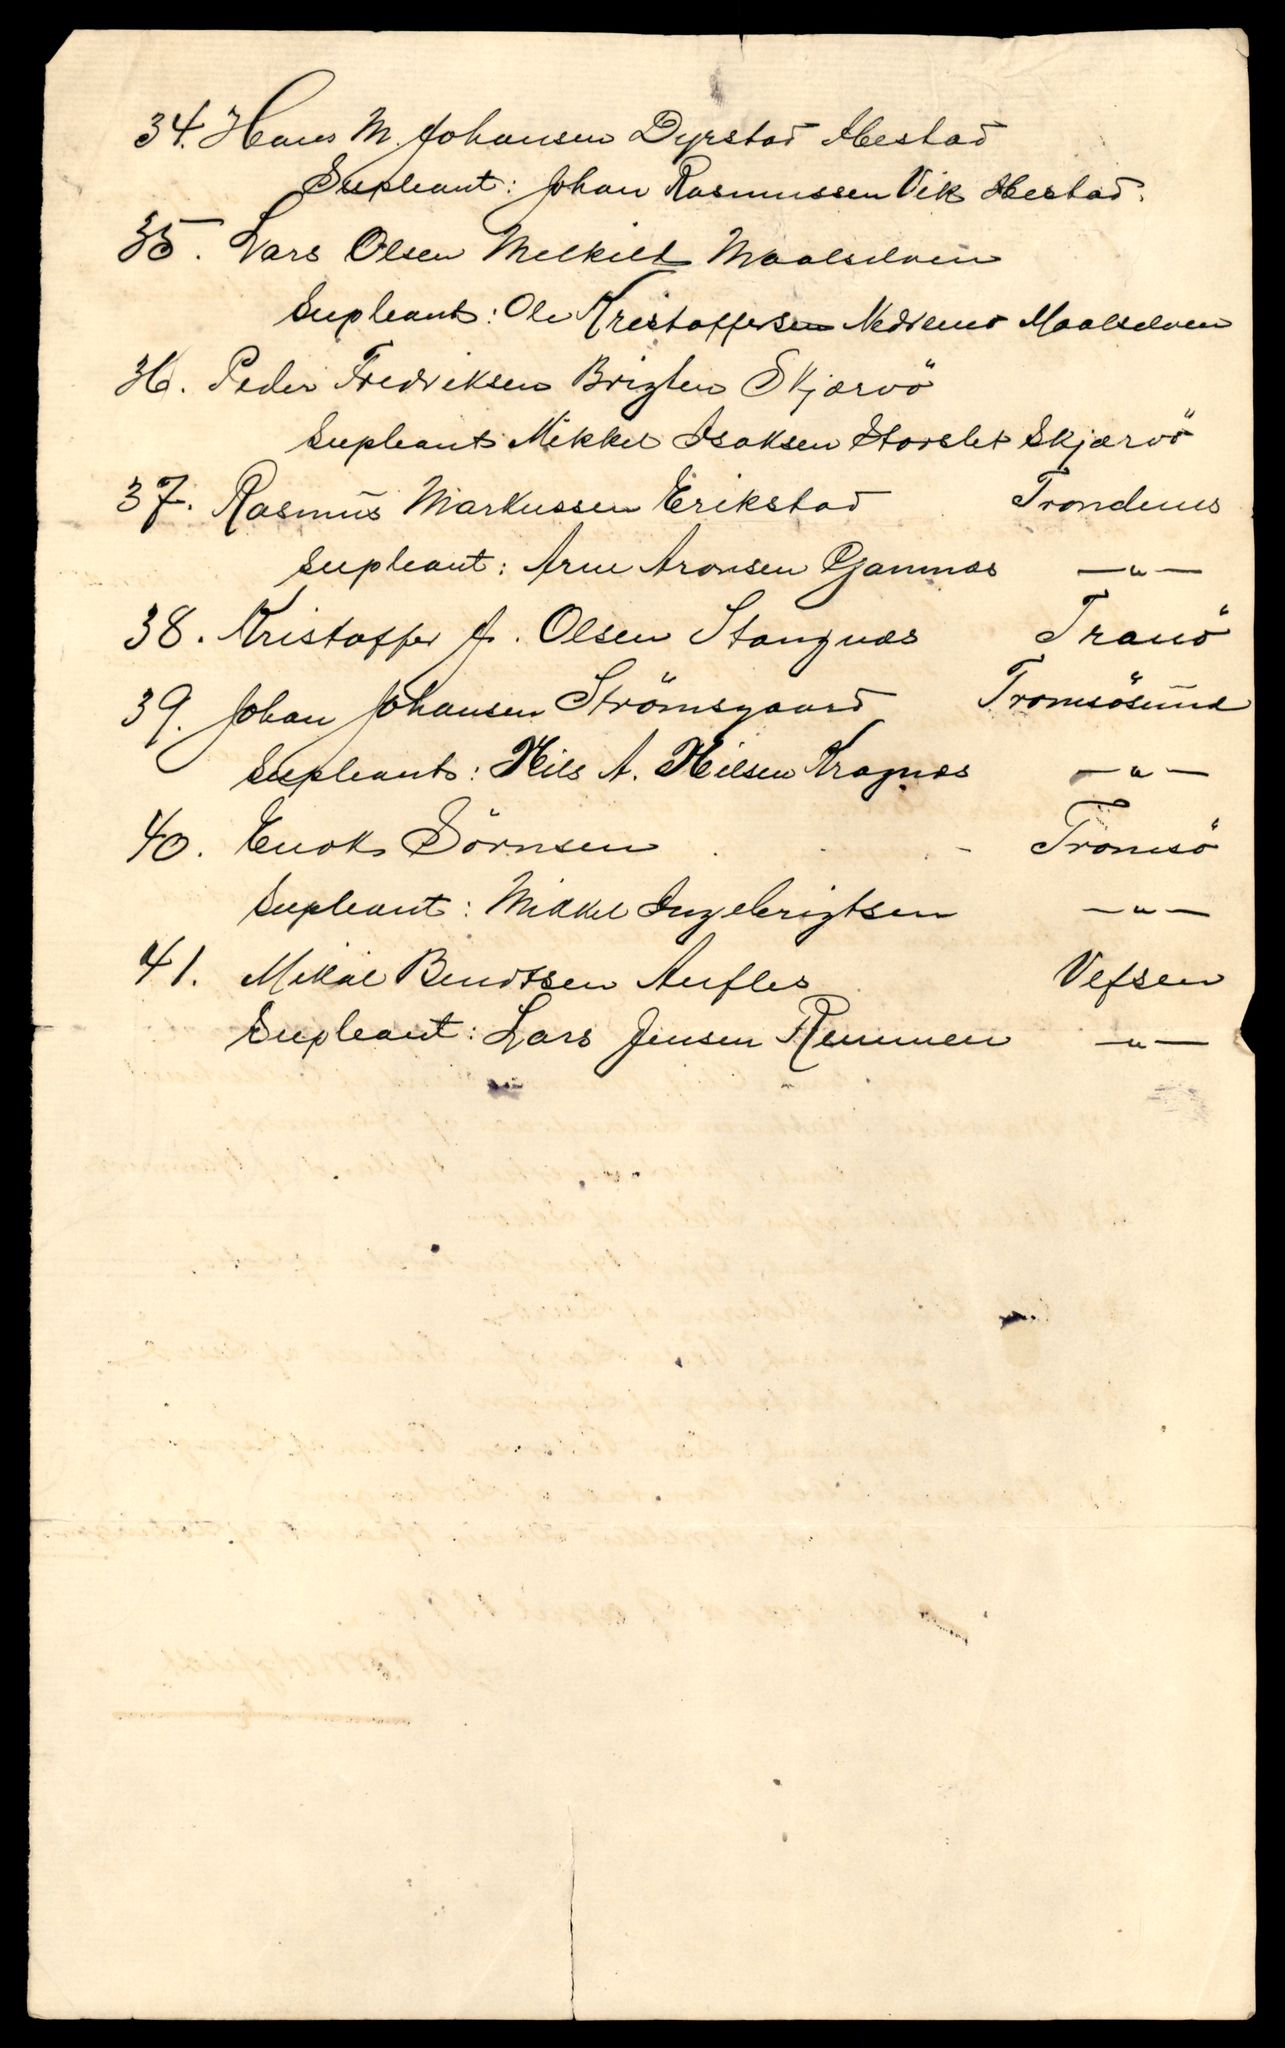 34. Hans M. Johansen Dyrstad Ibestad
Supleant: Johan Rasmussen Vik Ibestad.
35. Lars Olsen Melkild Maalselven
Supleant: Ole Kristoffersen Nedremo Maalselven
36. Peder Fredriksen Brigten Skjærvö
Supleant Mikkel Isaksen Storslet Skjærvö
37. Rasmus Markussen Erikstad Trondenes
Supleant: Arne Aronsen Gamnæs —"—
38. Kristoffer J. Olsen Stangnæs Tranö
39. Johan Johansen Strömsgaard Tromsösund
Supleant: Nils A. Nilsen Kragnæs —"—
40. Enok Sörnsen Tromsö
Supleant: Mikkel Ingebrigtsen —"—
41. Mikal Bendtsen Aufles Vefsen
Supleant: Lars Jensen Remmen —"—